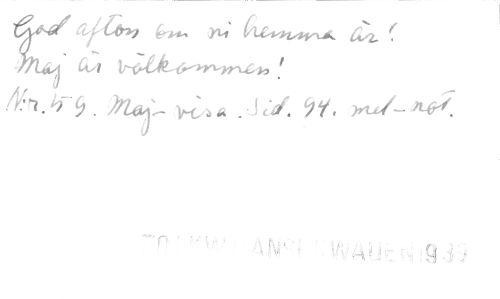 God afton om ni hemma är!
Maj är välkommen!
N:r. 59. Maj-visa. Sid. 94. mel-not.